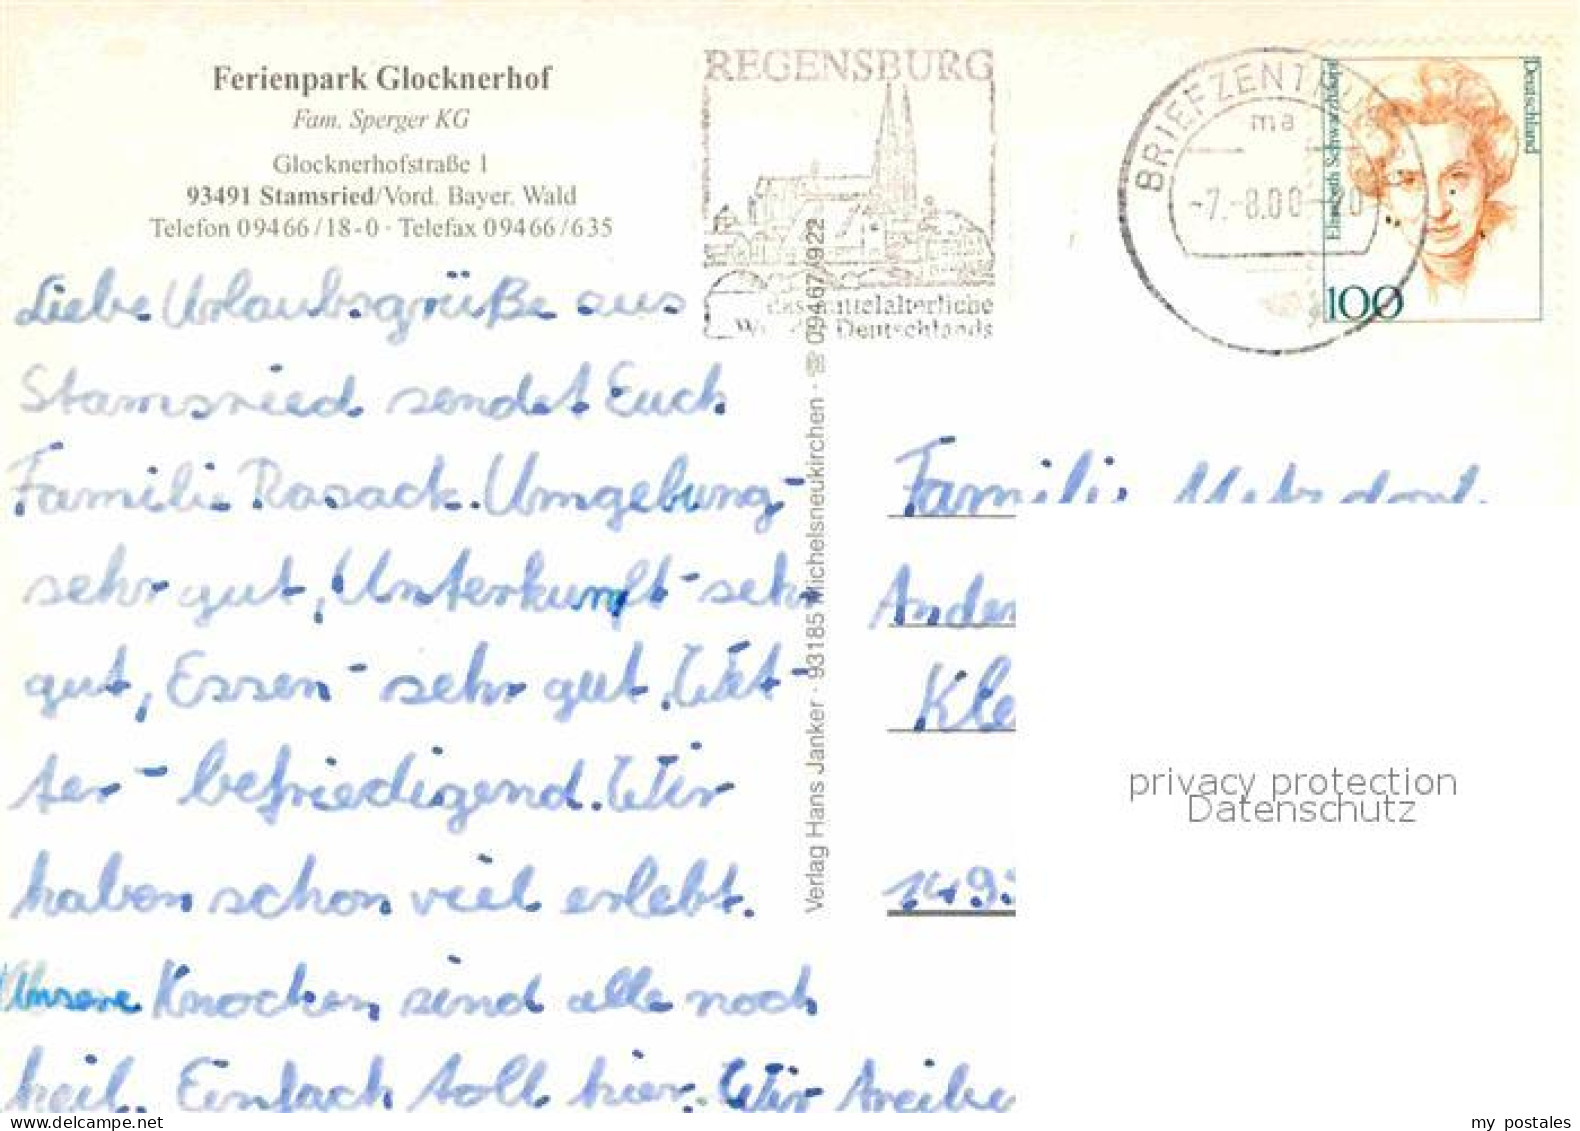 Ferienpark Glocknerhof
Fam. Sperger KG
Glocknerhofstraße 1
93491 Stamsried/Vord. Bayer. Wald
Telefon 09466/18-0 · Telefax 09466/635
REGENSBURG
mittelalterliche
Deutschlands
BRIEFZENTRUM
ma
-7.-8.00-20
Deutschland
Elisabeth Schwarzhaupt
100
Liebe Urlaubsgrüße aus
Stamsried sendet Euch
Familie Rasack. Umgebung-
sehr gut, Unterkunft-sehr
gut, Essen-sehr gut, Wet-
ter-befriedigend. Wir
haben schon viel erlebt.
Unsere Knochen sind alle noch
heil. Einfach toll hier. Wir treibe
Verlag Hans Janker · 93185 Michelsneukirchen · ☎ 09467/922
Familie
Ander
Kle
149
privacy protection
Datenschutz
www.delcampe.net
my_postales